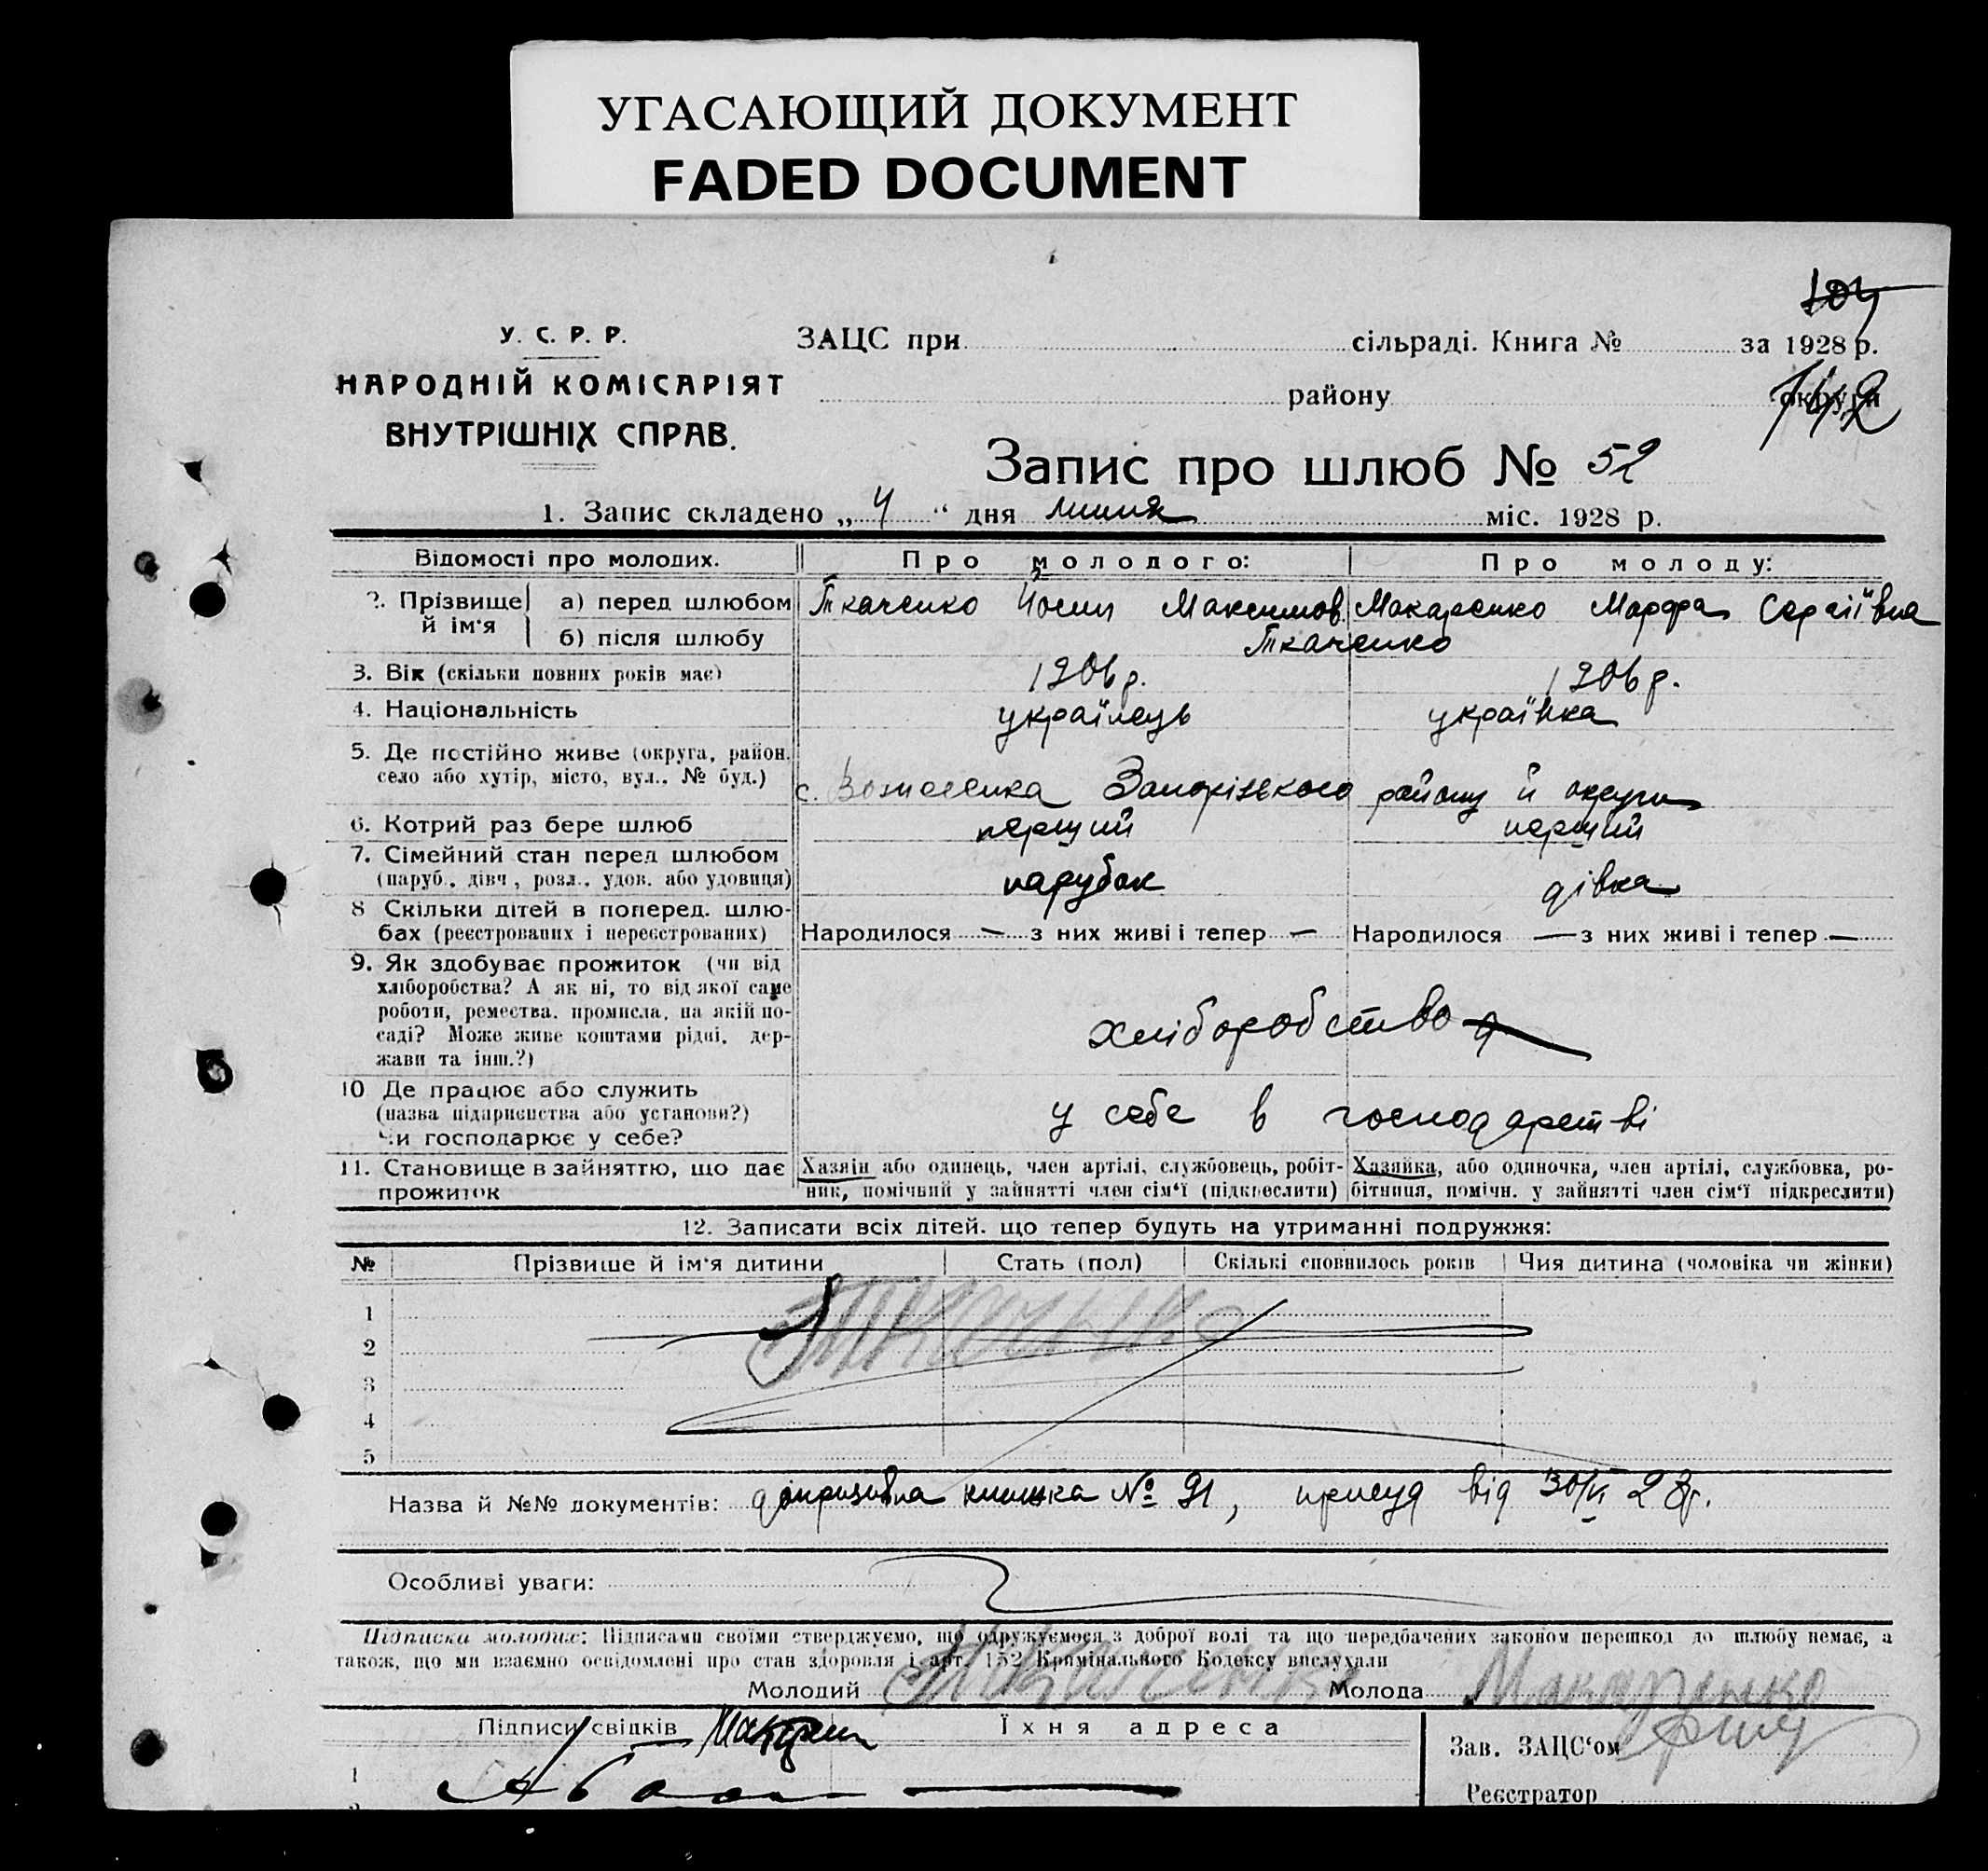 УГАСАЮЩИЙ ДОКУМЕНТ
FADED DOCUMENT
У. С. Р. Р.
НАРОДНІЙ КОМІСАРІЯТ
ВНУТРІШНІХ СПРАВ.
104
ЗАЦС при сільраді. Книга № за 1928 р.
району округи
142
Запис про шлюб № 52
1. Запис складено „ 4 “ дня липня міс. 1928 р.
Відомості про молодих. Про молодого: Про молоду:
2. Прізвище й ім'я а) перед шлюбом Ткаченко Йосип Максимов. Макаренко Марфа Сергіївна
б) після шлюбу Ткаченко
3. Вік (скільки повних років має) 1906 р. 1906 р.
4. Національність українець українка
5. Де постійно живе (округа, район, село або хутір, місто, вул., № буд.) с. Вознесенка Запорізького району й округи
6. Котрий раз бере шлюб перший перший
7. Сімейний стан перед шлюбом парубок дівка
(паруб., дівч., розл., удов. або удовиця)
8 Скільки дітей в поперед. шлю-
бах (реєстрованих і нереєстрованих) Народилося — з них живі і тепер — Народилося — з них живі і тепер —
9. Як здобуває прожиток (чи від
хліборобства? А як ні, то від якої саме
роботи, ремества, промисла, на якій по-
саді? Може живе коштами рідні, дер-
жави та інш.?) хліборобство
10 Де працює або служить
(назва підприємства або установи?) у себе в господарстві
Чи господарює у себе?
11. Становище в зайняттю, що дає прожиток
Хазяїн або одинець, член артілі, службовець, робіт-
ник, помічний у зайнятті член сім'ї (підкреслити)
Хазяйка, або одиночка, член артілі, службовка, ро-
бітниця, помічн. у зайнятті член сім'ї підкреслити)
12. Записати всіх дітей. що тепер будуть на утриманні подружжя:
№ Прізвище й ім'я дитини Стать (пол) Скількі сповнилось років Чия дитина (чоловіка чи жінки)
1
Ткаченко
2
3
4
5
Назва й №№ документів: допризивна книжка № 91, присуд від 30/VI 28 р.
Особливі уваги:
Підписка молодих: Підписами своїми стверджуємо, що одружуємося з доброї волі та що передбачених законом перешкод до шлюбу немає, а
також, що ми взаємно освідомлені про стан здоровля і арт. 152 Кримінального Кодексу вислухали
Молодий Ткаченко Молода Макаренко
Підписи свідків Їхня адреса
Зав. ЗАЦС'ом
1
Реєстратор